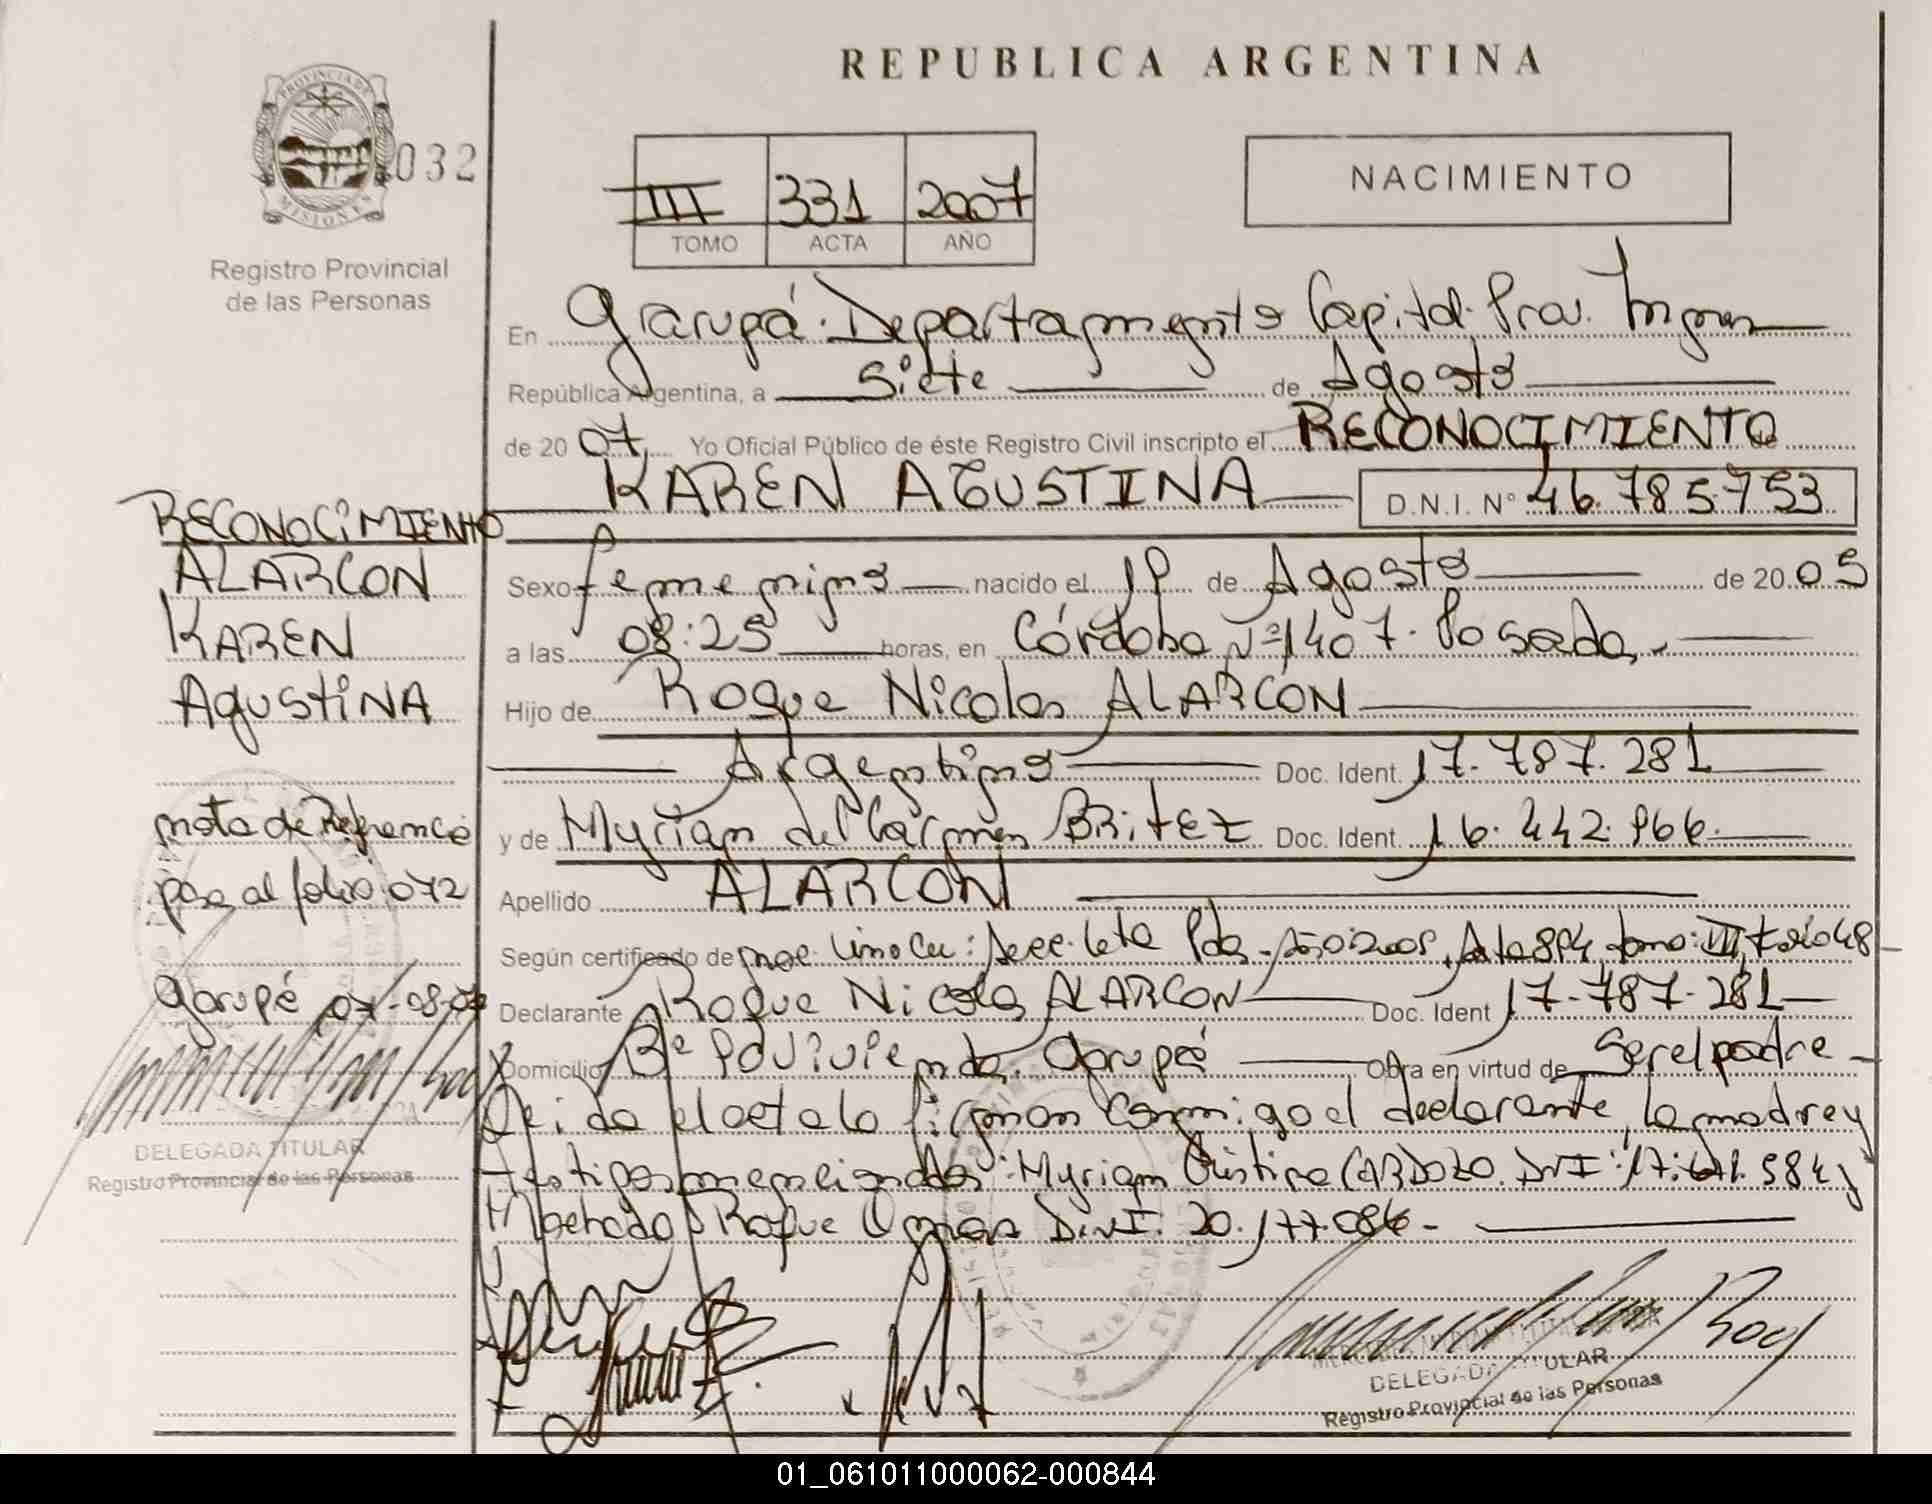 REPUBLICA ARGENTINA
PROVINCIA DE
MISIONES
032
Registro Provincial
de las Personas
III 331 2007
TOMO ACTA AÑO
NACIMIENTO
En Garupá. Departamento Capital. Prov. Mnes
República Argentina, a Siete de Agosto
de 2007 Yo Oficial Público de éste Registro Civil inscripto el RECONOCIMIENTO de
KAREN AGUSTINA D.N.I. N° 46.785.753
RECONOCIMIENTO
ALARCON
KAREN
AgustiNA
Sexo femenino nacido el 19 de Agosto de 2005
a las 08:25 horas, en Córdoba Nº 1407. Posadas.
Hijo de Roque Nicolas ALARCON
Argentino Doc. Ident. 17.787.281
y de Myriam del Carmen BRitEZ Doc. Ident. 16.442.966.
Apellido ALARCON
Según certificado de tomo: III, folio 48
Declarante Roque Nicolas ALARCON Doc. Ident 17.787.281
Domicilio Bº Garupá Obra en virtud de Ser el padre
Leida el acta la firman conmigo el declarante, la madre y
testigos mencionados: Myriam Cristina CARDOZO. DNI: 584 y
Machado Roque Omar D.N.I. 20.177.086-
nota de Referencia
pasa al folio 072
Garupá 07-08-07
DELEGADA TITULAR
Registro Provincial de las Personas
DELEGADA TITULAR
Registro Provincial de las Personas
01_061011000062-000844